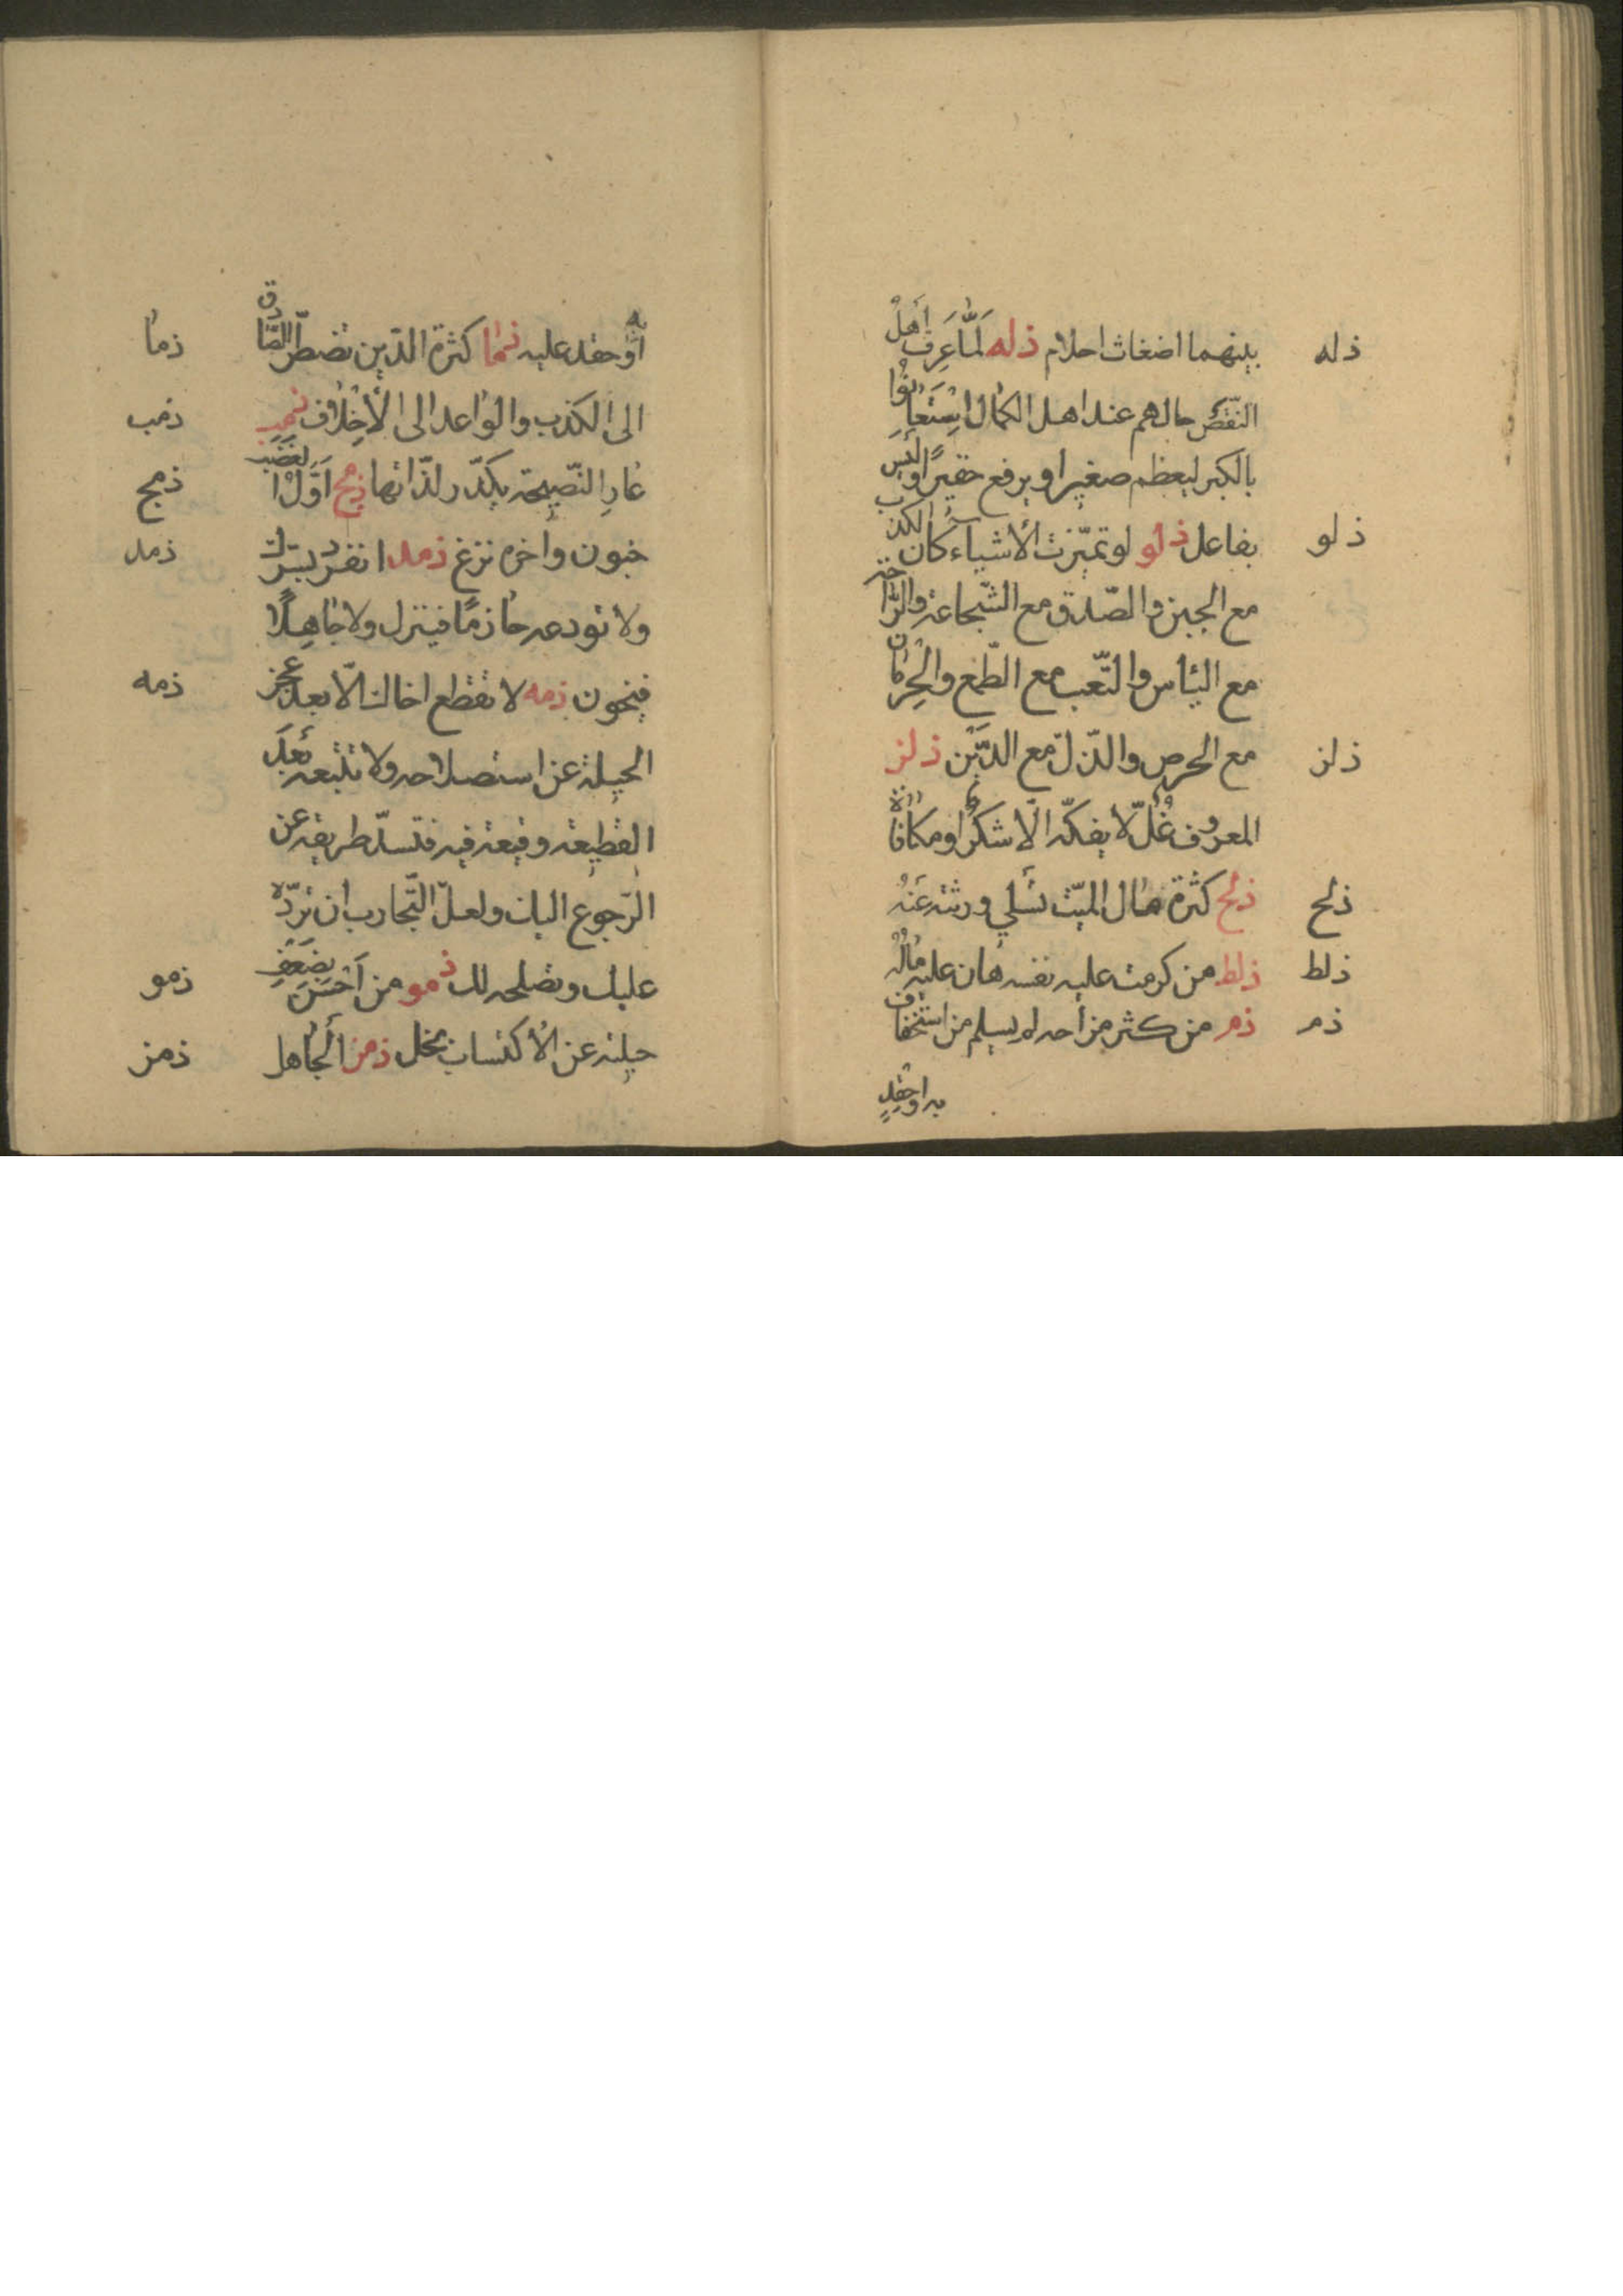 ذله
بينهما اضغاث احلام ذله لَمَّا عَرِفَ أَهلُ
النّقص حالهم عند اهل الكمال اسْتَعانُوا
بالكبر ليعظم صغيرا ويرفع حقيرًا وَلَيْسَ
ذلو
بفاعل ذلو لو تميّزت الأشياء كان الكذب
مع الجبن والصّدق مع الشّجاعة والرّاحة
مع اليأس والتّعب مع الطّمع والحِرمان
ذلز
مع الحرص والذّل مع الدّين ذلز
المعروف غُلٌّ لا يفكّه الّا شكر او مكافاة
ذلح
ذلح كثرة مال الميّت تسلي ورثته عنه
ذلط
ذلط من كرمت عليه نفسه هان عليه ماله
ذم
ذم من كثر مزاحه لم يسلم من استخفاف
به او حقد
ذما
به أو حقد عليه ذما كثرة الدّين تضطرّ الصّادق
ذمب
الى الكذب والواعد الى الأخلاف ذمب
ذمج
عار النّصيحة يكدّر لذّاتها ذمج اوّل الغضب
ذمد
جنون وآخره ندم ذمد انفرد بسرّك
ولا تودعه حازمًا فيزلّ ولا جاهلًا
ذمه
فيخون ذمه لا تقطع اخاك الّا بعد عجز
الحيلة عن استصلاحه ولا تتبعه بعد
القطيعة وقيعة فيه فتسدّ طريقه عن
الرّجوع اليك ولعلّ التّجارب ان تردّه
ذمو
عليك وتصلحه لك ذمو من أحسّ بضعف
ذمز
حيلته عن الأكتساب بخل ذمز الجاهل